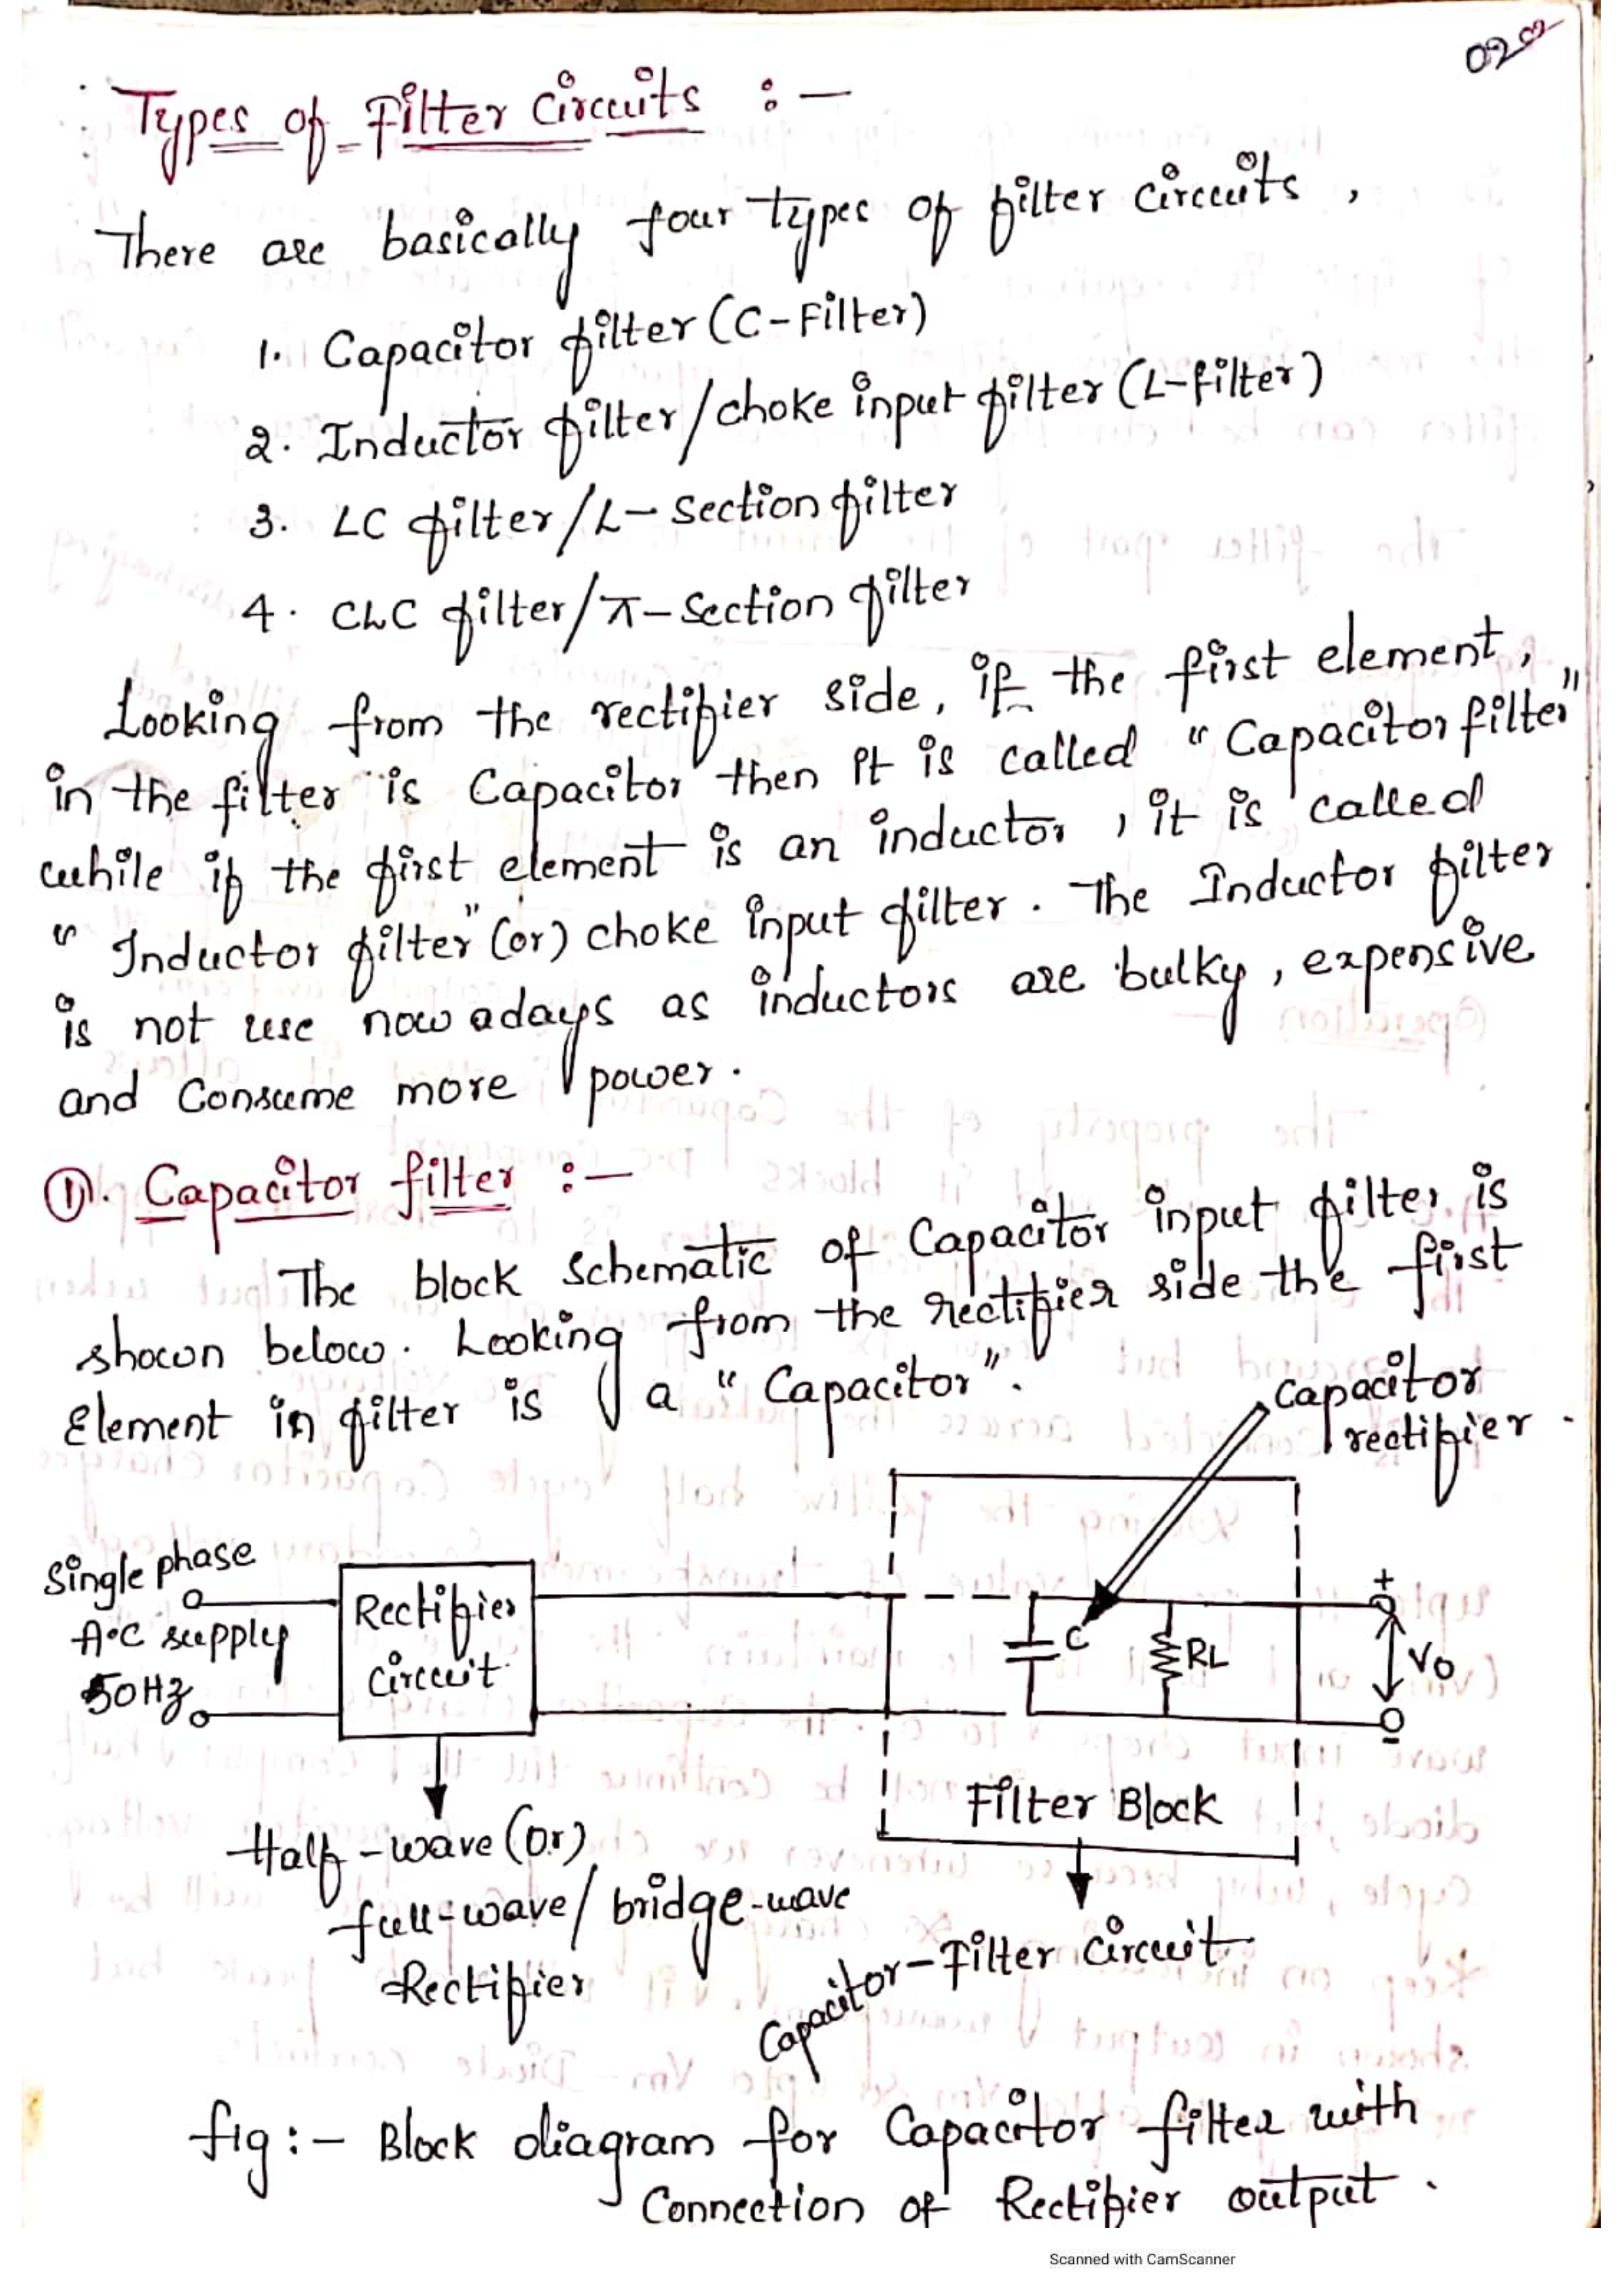 020
Types of Filter Circuits :-
There are basically four types of filter circuits ,
1. Capacitor filter (C-Filter)
2. Inductor filter/choke input filter (L-filter)
3. LC filter/L-Section filter
4. CLC filter/π-Section filter
Looking from the rectifier side, if the first element,
in the filter is Capacitor then it is called "Capacitor filter"
while if the first element is an inductor, it is called
"Inductor filter" (or) choke input filter. The Inductor filter
is not use now adays as inductors are bulky, expensive
and Consume more power.
①. Capacitor filter :-
The block Schematic of Capacitor input filter is
shown below. Looking from the rectifier side the first
Element in filter is a "Capacitor".
Capacitor
rectifier.
Single phase
A.C supply
50Hz
Rectifier
circuit
C
RL
+
Vo
-
Filter Block
Half-wave (or)
full-wave/bridge-wave
Rectifier
Capacitor-Filter Circuit
fig:- Block diagram for Capacitor filter with
Connection of Rectifier output.
Scanned with CamScanner